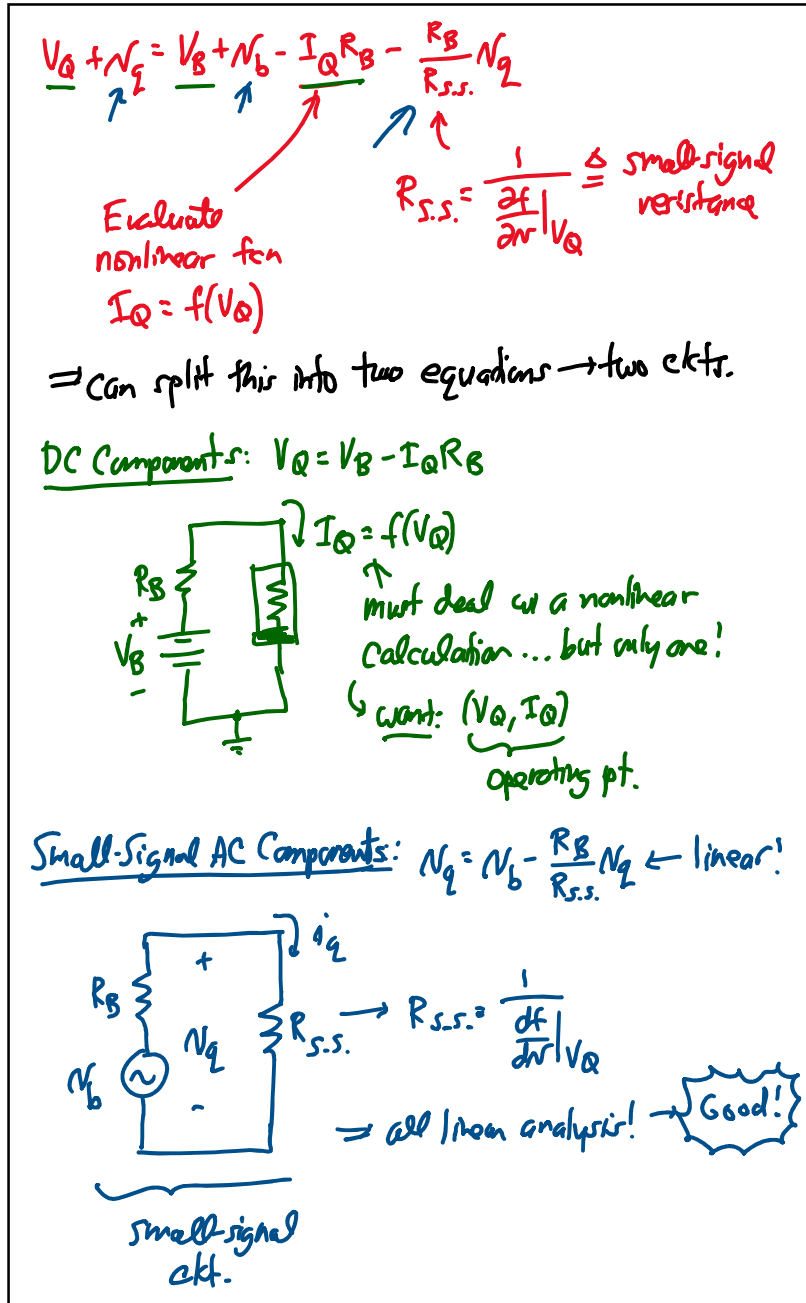 V_Q + v_q = V_B + v_b - I_Q R_B - R_B/R_s.s. v_q
R_s.s. = 1/(∂f/∂v|V_Q) ≜ small-signal resistance
Evaluate
nonlinear fcn
I_Q = f(V_Q)
⇒ can split this into two equations → two ckts.
DC Components: V_Q = V_B - I_Q R_B
I_Q = f(V_Q)
R_B
+
V_B
-
must deal w/ a nonlinear
calculation ... but only one!
want: (V_Q, I_Q)
operating pt.
Small-Signal AC Components: v_q = v_b - R_B/R_s.s. v_q ← linear!
i_q
+
R_B
v_q
R_s.s. → R_s.s. = 1/(df/dv|V_Q)
v_b
-
⇒ all linear analysis! → Good!
small-signal
ckt.